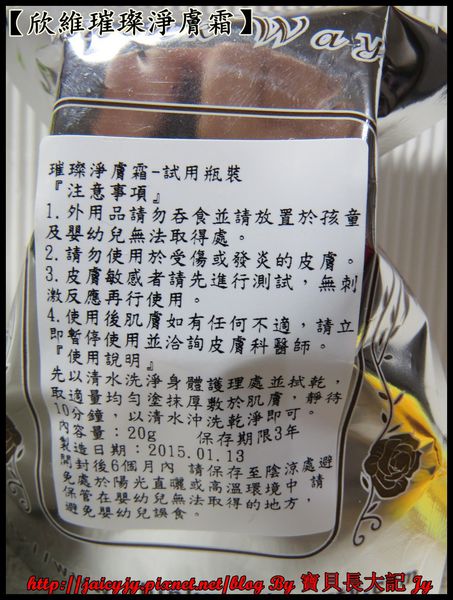 【欣維璀璨淨膚霜】
璀璨淨膚霜-試用瓶裝
『注意事項』
1. 外用品請勿吞食並請放置於孩童
及嬰幼兒無法取得處。
2. 請勿使用於受傷或發炎的皮膚。
3. 皮膚敏感者請先進行測試，無刺
激反應再行使用。
4. 使用後肌膚如有任何不適，請立
即暫停使用並洽詢皮膚科醫師。
『使用說明』
先以清水洗淨身體護理處並拭乾，
取適量均勻塗抹厚敷於肌膚，靜待
10分鐘，以清水沖洗乾淨即可。
內容量：20g 保存期限3年
製造日期：2015.01.13
開封後6個月內 請保存至陰涼處避
免處於陽光直曬或高溫環境中 請
保管在嬰幼兒無法取得的地方，
避免嬰幼兒誤食。
http://jaicyjy.pixnet.net/blog By 寶貝長大記 Jy